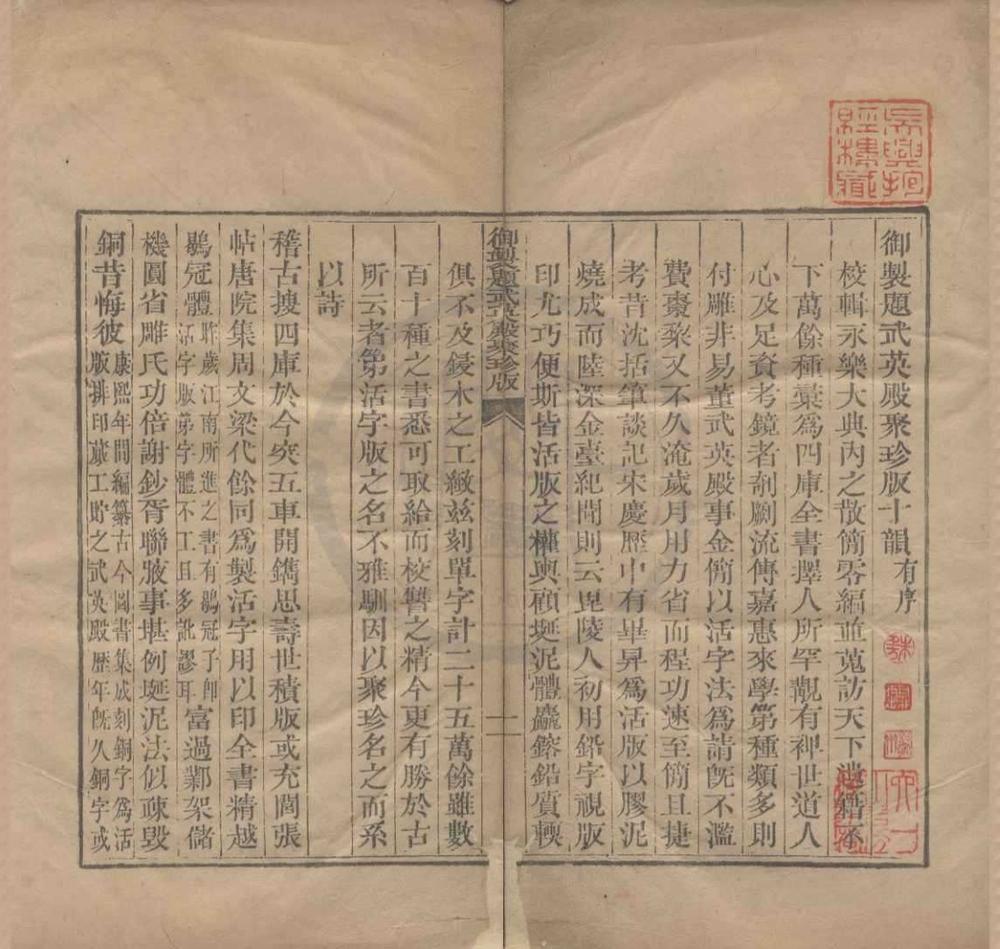 御製題武英殿聚珍版十韻有序
校輯永樂大典內之散簡零編並蒐訪天下遺籍不
下萬餘種彙爲四庫全書擇人所罕覯有裨世道人
心及足資考鏡者剞劂流傳嘉惠來學第種類多則
付雕非易董武英殿事金簡以活字法爲請旣不濫
費棗棃又不久淹歲月用力省而程功速至簡且捷
考昔沈括筆談記宋慶歷中有畢昇爲活版以膠泥
燒成而陸深金臺紀聞則云毘陵人初用鉛字視版
印尤巧便斯皆活版之權輿顧埏泥體麤鎔鉛質輭
御製題武英殿聚珍版
一
俱不及鋟木之工緻茲刻單字計二十五萬餘雖數
百十種之書悉可取給而校讐之精今更有勝於古
所云者第活字版之名不雅馴因以聚珍名之而系
以詩
稽古搜四庫於今突五車開鐫思壽世積版或充閭張
帖唐院集周文梁代餘同爲製活字用以印全書精越
鶡冠體昨歲江南所進之書有鶡冠子卽活字版第字體不工且多訛謬耳富過鄴架儲
機圓省雕氏功倍謝鈔胥聯腋事堪例埏泥法似疎毀
銅昔悔彼康熙年間編纂古今圖書集成刻銅字爲活版排印蕆工貯之武英殿歷年旣久銅字或
吳興抱經樓藏